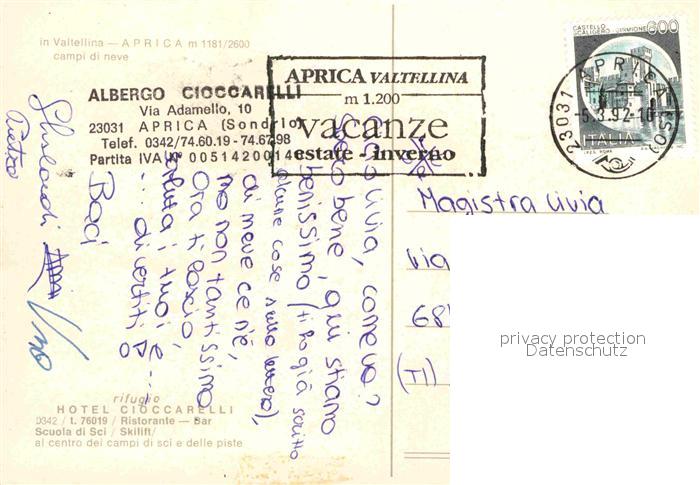 in Valtellina - APRICA m 1181/2600
campi di neve
ALBERGO CIOCCARELLI
Via Adamello, 10
23031 APRICA (Sondrio)
Telef. 0342/74.60.19 - 74.67.98
Partita IVA N. 0051420014
APRICA VALTELLINA
m 1.200
vacanze
estate - inverno
CASTELLO SCALIGERO - SIRMIONE
600
ITALIA
I.P.Z.S. ROMA
23031 APRICA (SO)
-5.3.92-16
Cara Livia, come va?
Spero bene, qui stiamo
benissimo (ti ho già scritto
alcune cose nella lettera),
di neve ce n'è,
ma non tantissima
Ora ti lascio,
saluta i tuoi e ...
... divertiti
Baci
Magistra Livia
Via
68
(TI)
privacy protection
Datenschutz
rifugio
HOTEL CIOCCARELLI
0342 / t. 76019 / Ristorante - Bar
Scuola di Sci / Skilift/
al centro dei campi di sci e delle piste